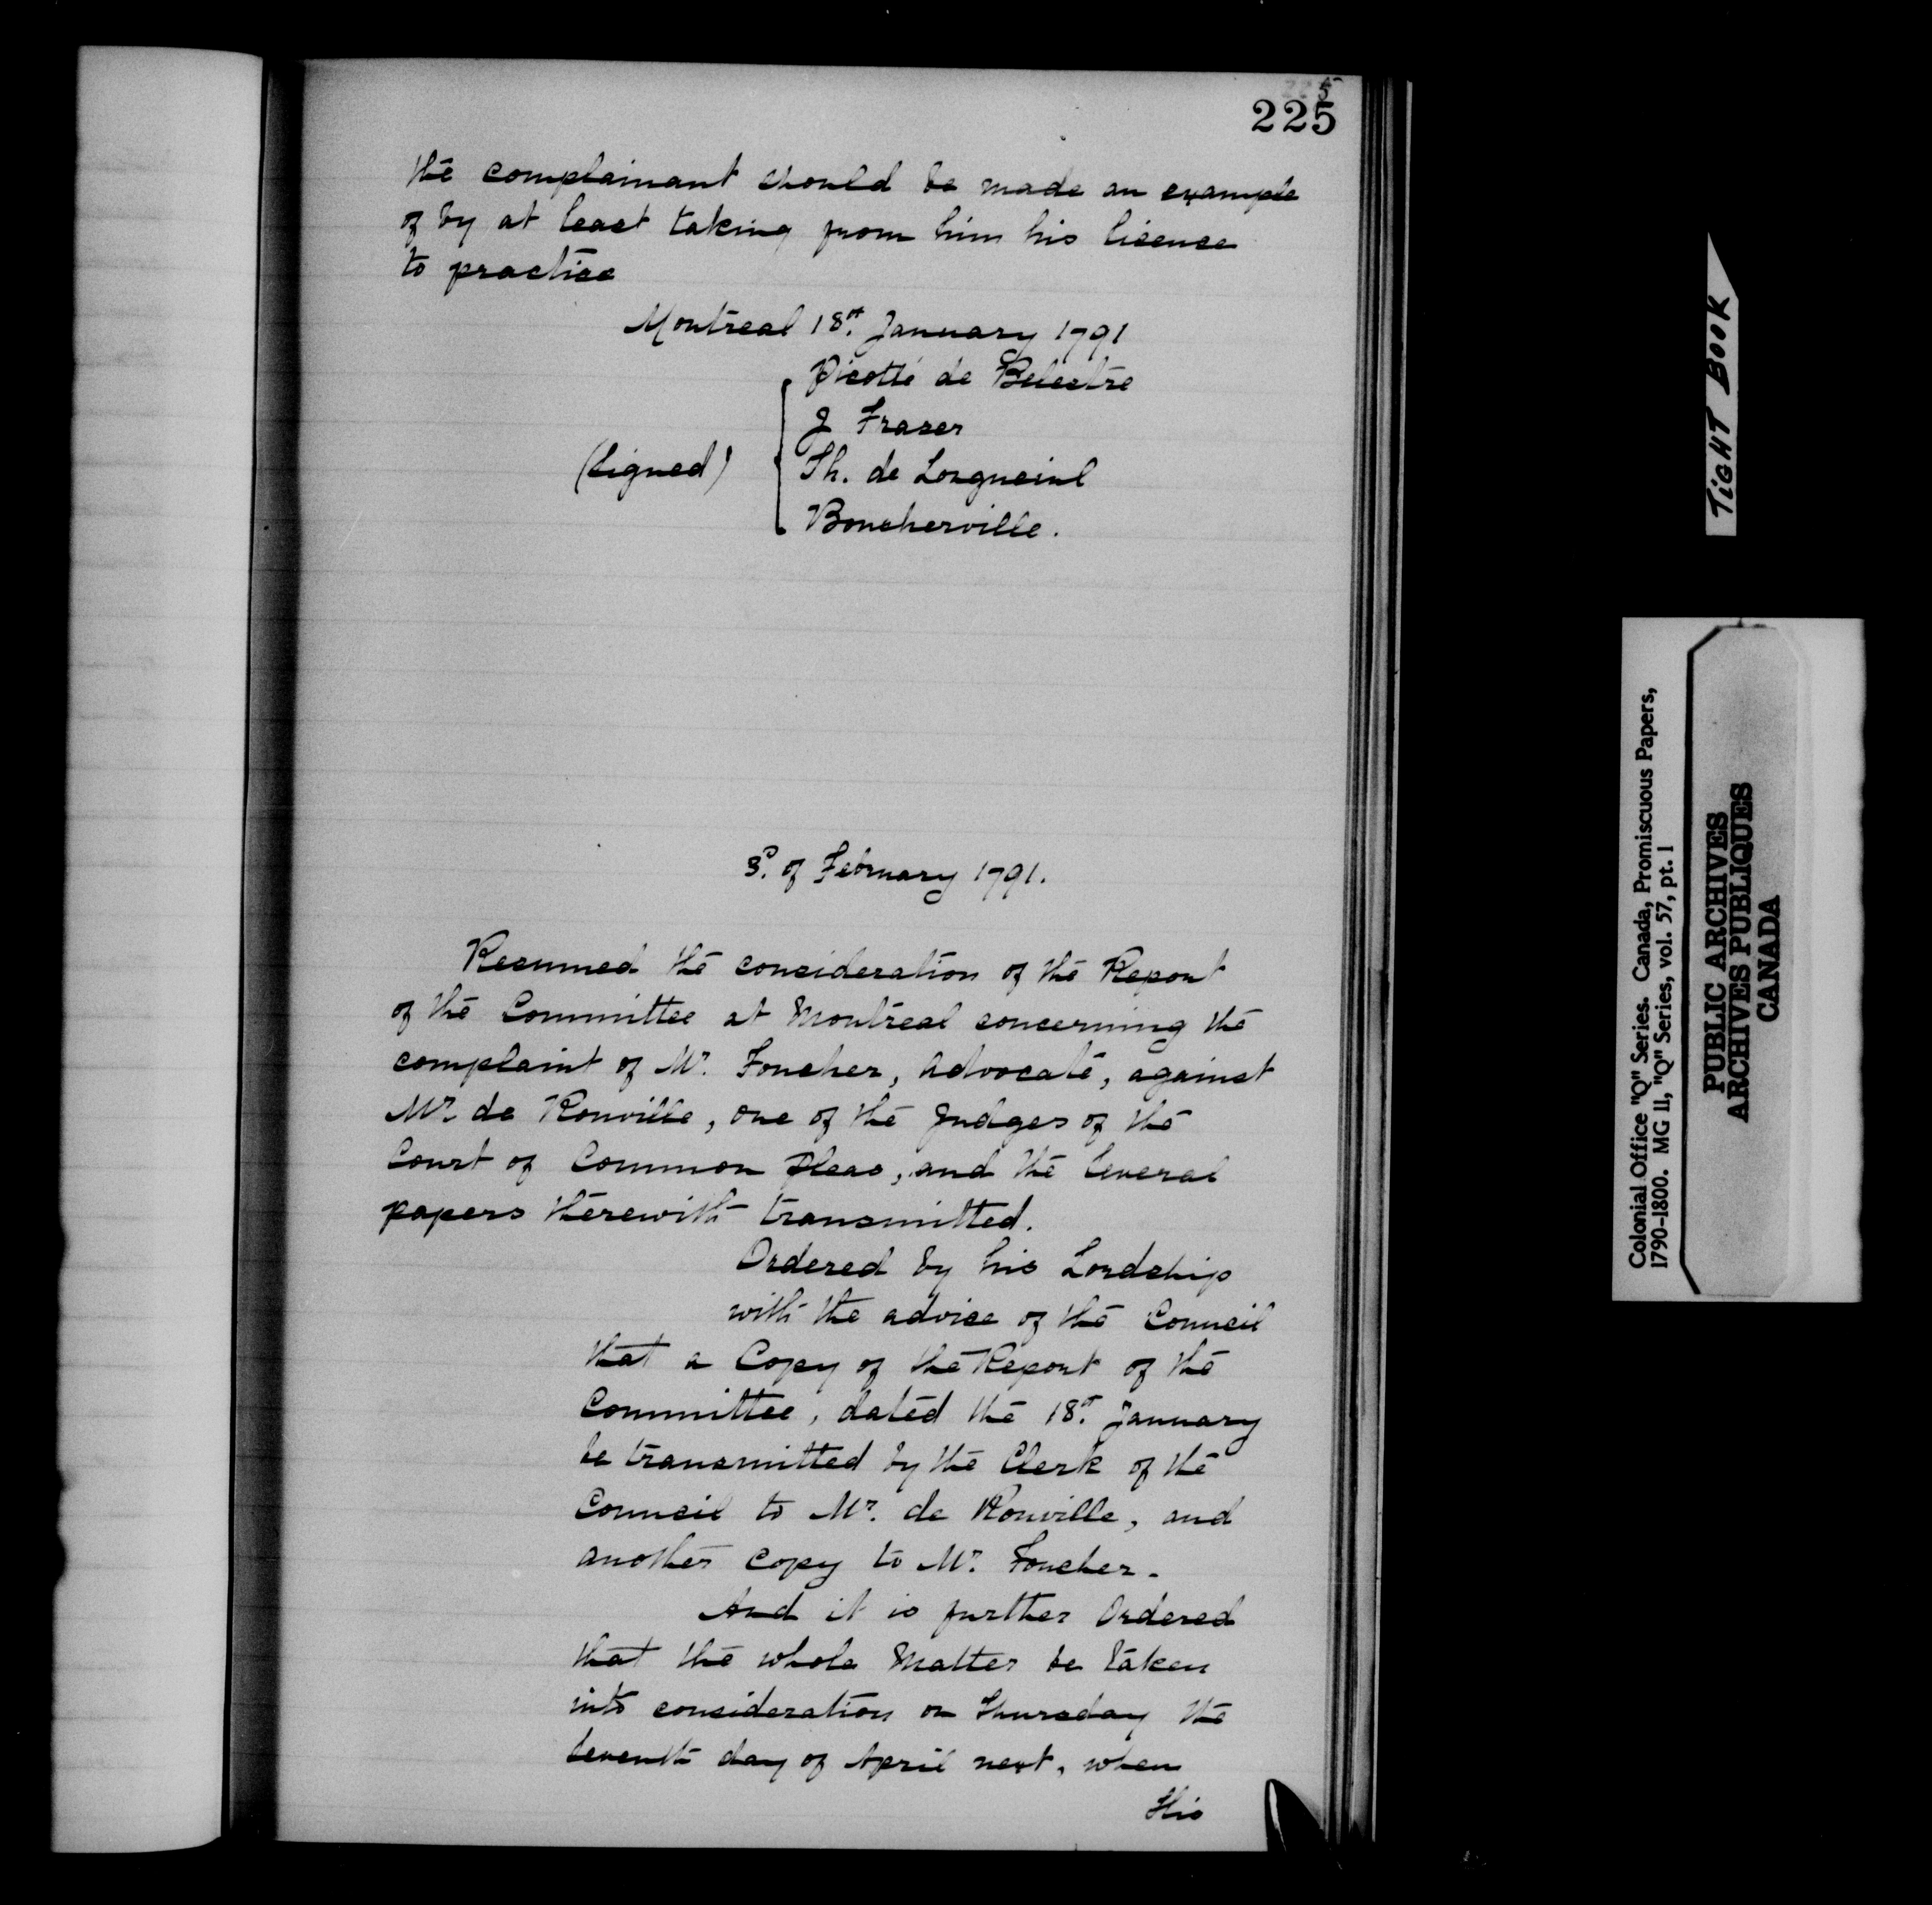 225
the complainant should be made an example
of by at least taking from him his licence
to practice
Montreal 18th January 1791
Picotté de Belestre
J Fraser
(Signed)
Th. de Longueuil
Boucherville.
3d. of February 1791.
Resumed the consideration of the Report
of the Committee at Montreal concerning the
complaint of Mr. Foucher, Advocate, against
Mr de Rouville, one of the Judges of the
Court of Common Pleas, and the Several
papers therewith transmitted.
Ordered by his Lordship
with the advice of the Council
that a Copy of the Report of the
Committee, dated the 18th. January
be transmitted by the Clerk of the
Council to Mr. de Rouville, and
another copy to Mr. Foucher.
And it is further Ordered
that the whole Matter be taken
into consideration on Thursday the
Seventh day of April next, when
His
TIGHT BOOK
Colonial Office "Q" Series. Canada, Promiscuous Papers,
1790-1800. MG 11, "Q" Series, vol. 57, pt. 1
PUBLIC ARCHIVES
ARCHIVES PUBLIQUES
CANADA